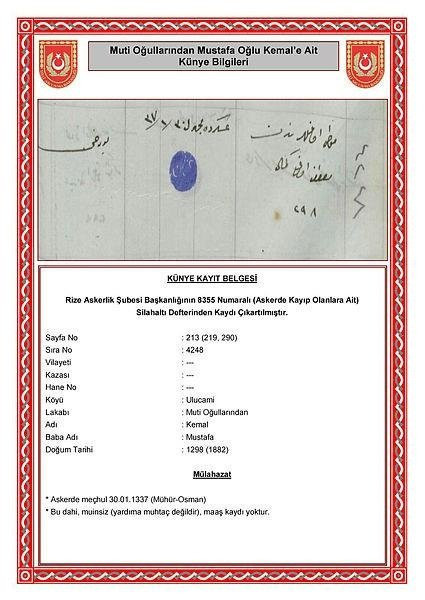 Muti Oğullarından Mustafa Oğlu Kemal'e Ait
Künye Bilgileri
٢٩٨
KÜNYE KAYIT BELGESİ
Rize Askerlik Şubesi Başkanlığının 8355 Numaralı (Askerde Kayıp Olanlara Ait)
Silahaltı Defterinden Kaydı Çıkartılmıştır.
Sayfa No : 213 (219, 290)
Sıra No : 4248
Vilayeti : ---
Kazası : ---
Hane No : ---
Köyü : Ulucami
Lakabı : Muti Oğullarından
Adı : Kemal
Baba Adı : Mustafa
Doğum Tarihi : 1298 (1882)
Mülahazat
* Askerde meçhul 30.01.1337 (Mühür-Osman)
* Bu dahi, muinsiz (yardıma muhtaç değildir), maaş kaydı yoktur.